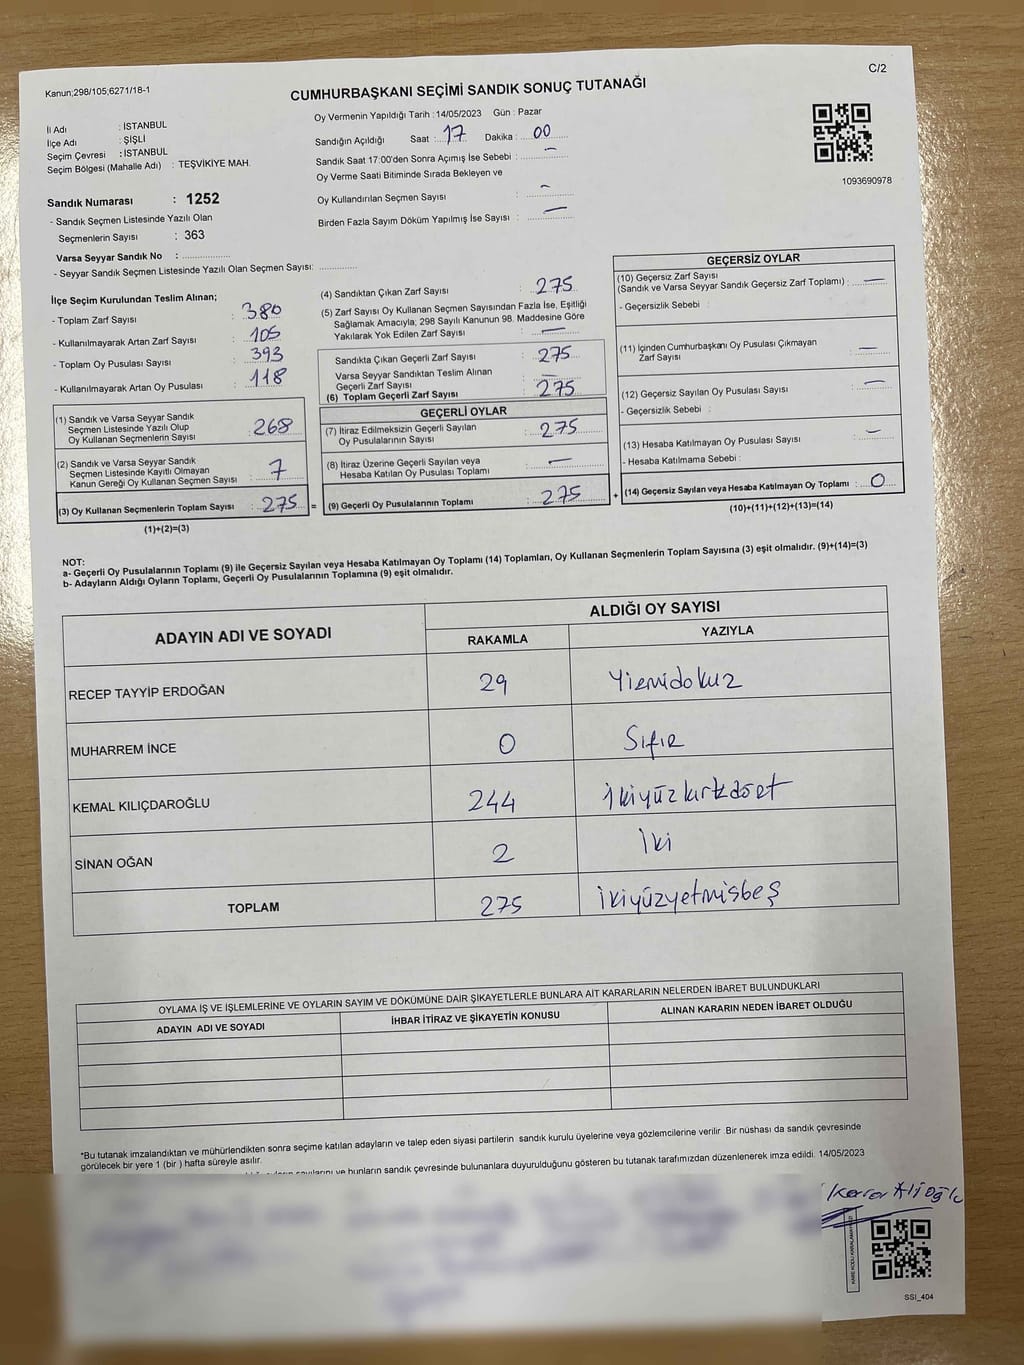 Kanun;298/105;6271/18-1
C/2
CUMHURBAŞKANI SEÇİMİ SANDIK SONUÇ TUTANAĞI
Oy Vermenin Yapıldığı Tarih : 14/05/2023 Gün : Pazar
İl Adı : İSTANBUL
İlçe Adı : ŞİŞLİ
Seçim Çevresi : İSTANBUL
Seçim Bölgesi (Mahalle Adı) : TEŞVİKİYE MAH.
Sandık Numarası : 1252
- Sandık Seçmen Listesinde Yazılı Olan
Seçmenlerin Sayısı : 363
Varsa Seyyar Sandık No :
- Seyyar Sandık Seçmen Listesinde Yazılı Olan Seçmen Sayısı:
Sandığın Açıldığı Saat : 17 Dakika : 00
Sandık Saat 17:00'den Sonra Açımış İse Sebebi : -
Oy Verme Saati Bitiminde Sırada Bekleyen ve
Oy Kullandırılan Seçmen Sayısı : -
Birden Fazla Sayım Döküm Yapılmış İse Sayısı : -
1093690978
İlçe Seçim Kurulundan Teslim Alınan;
- Toplam Zarf Sayısı : 380
- Kullanılmayarak Artan Zarf Sayısı : 105
- Toplam Oy Pusulası Sayısı : 393
- Kullanılmayarak Artan Oy Pusulası : 118
(1) Sandık ve Varsa Seyyar Sandık
Seçmen Listesinde Yazılı Olup
Oy Kullanan Seçmenlerin Sayısı : 268
(2) Sandık ve Varsa Seyyar Sandık
Seçmen Listesinde Kayıtlı Olmayan
Kanun Gereği Oy Kullanan Seçmen Sayısı : 7
(3) Oy Kullanan Seçmenlerin Toplam Sayısı : 275 =
(1)+(2)=(3)
(4) Sandıktan Çıkan Zarf Sayısı : 275
(5) Zarf Sayısı Oy Kullanan Seçmen Sayısından Fazla İse, Eşitliği
Sağlamak Amacıyla; 298 Sayılı Kanunun 98. Maddesine Göre
Yakılarak Yok Edilen Zarf Sayısı : -
Sandıkta Çıkan Geçerli Zarf Sayısı : 275
Varsa Seyyar Sandıktan Teslim Alınan
Geçerli Zarf Sayısı : -
(6) Toplam Geçerli Zarf Sayısı : 275
GEÇERLİ OYLAR
(7) İtiraz Edilmeksizin Geçerli Sayılan
Oy Pusulalarının Sayısı : 275
(8) İtiraz Üzerine Geçerli Sayılan veya
Hesaba Katılan Oy Pusulası Toplamı : -
(9) Geçerli Oy Pusulalarının Toplamı : 275 +
GEÇERSİZ OYLAR
(10) Geçersiz Zarf Sayısı
(Sandık ve Varsa Seyyar Sandık Geçersiz Zarf Toplamı) : -
- Geçersizlik Sebebi :
(11) İçinden Cumhurbaşkanı Oy Pusulası Çıkmayan
Zarf Sayısı : -
(12) Geçersiz Sayılan Oy Pusulası Sayısı : -
- Geçersizlik Sebebi :
(13) Hesaba Katılmayan Oy Pusulası Sayısı : -
- Hesaba Katılmama Sebebi :
(14) Geçersiz Sayılan veya Hesaba Katılmayan Oy Toplamı : 0
(10)+(11)+(12)+(13)=(14)
NOT:
a- Geçerli Oy Pusulalarının Toplamı (9) ile Geçersiz Sayılan veya Hesaba Katılmayan Oy Toplamı (14) Toplamları, Oy Kullanan Seçmenlerin Toplam Sayısına (3) eşit olmalıdır. (9)+(14)=(3)
b- Adayların Aldığı Oyların Toplamı, Geçerli Oy Pusulalarının Toplamına (9) eşit olmalıdır.
ADAYIN ADI VE SOYADI ALDIĞI OY SAYISI
RAKAMLA YAZIYLA
RECEP TAYYİP ERDOĞAN 29 Yirmidokuz
MUHARREM İNCE 0 Sıfır
KEMAL KILIÇDAROĞLU 244 ikiyüzkırkdört
SİNAN OĞAN 2 İki
TOPLAM 275 ikiyüzyetmişbeş
OYLAMA İŞ VE İŞLEMLERİNE VE OYLARIN SAYIM VE DÖKÜMÜNE DAİR ŞİKAYETLERLE BUNLARA AİT KARARLARIN NELERDEN İBARET BULUNDUKLARI
ADAYIN ADI VE SOYADI İHBAR İTİRAZ VE ŞİKAYETİN KONUSU ALINAN KARARIN NEDEN İBARET OLDUĞU
*Bu tutanak imzalandıktan ve mühürlendikten sonra seçime katılan adayların ve talep eden siyasi partilerin sandık kurulu üyelerine veya gözlemcilerine verilir .Bir nüshası da sandık çevresinde
görülecek bir yere 1 (bir ) hafta süreyle asılır.
sayılarını ve bunların sandık çevresinde bulunanlara duyurulduğunu gösteren bu tutanak tarafımızdan düzenlenerek imza edildi. 14/05/2023
SSI_404